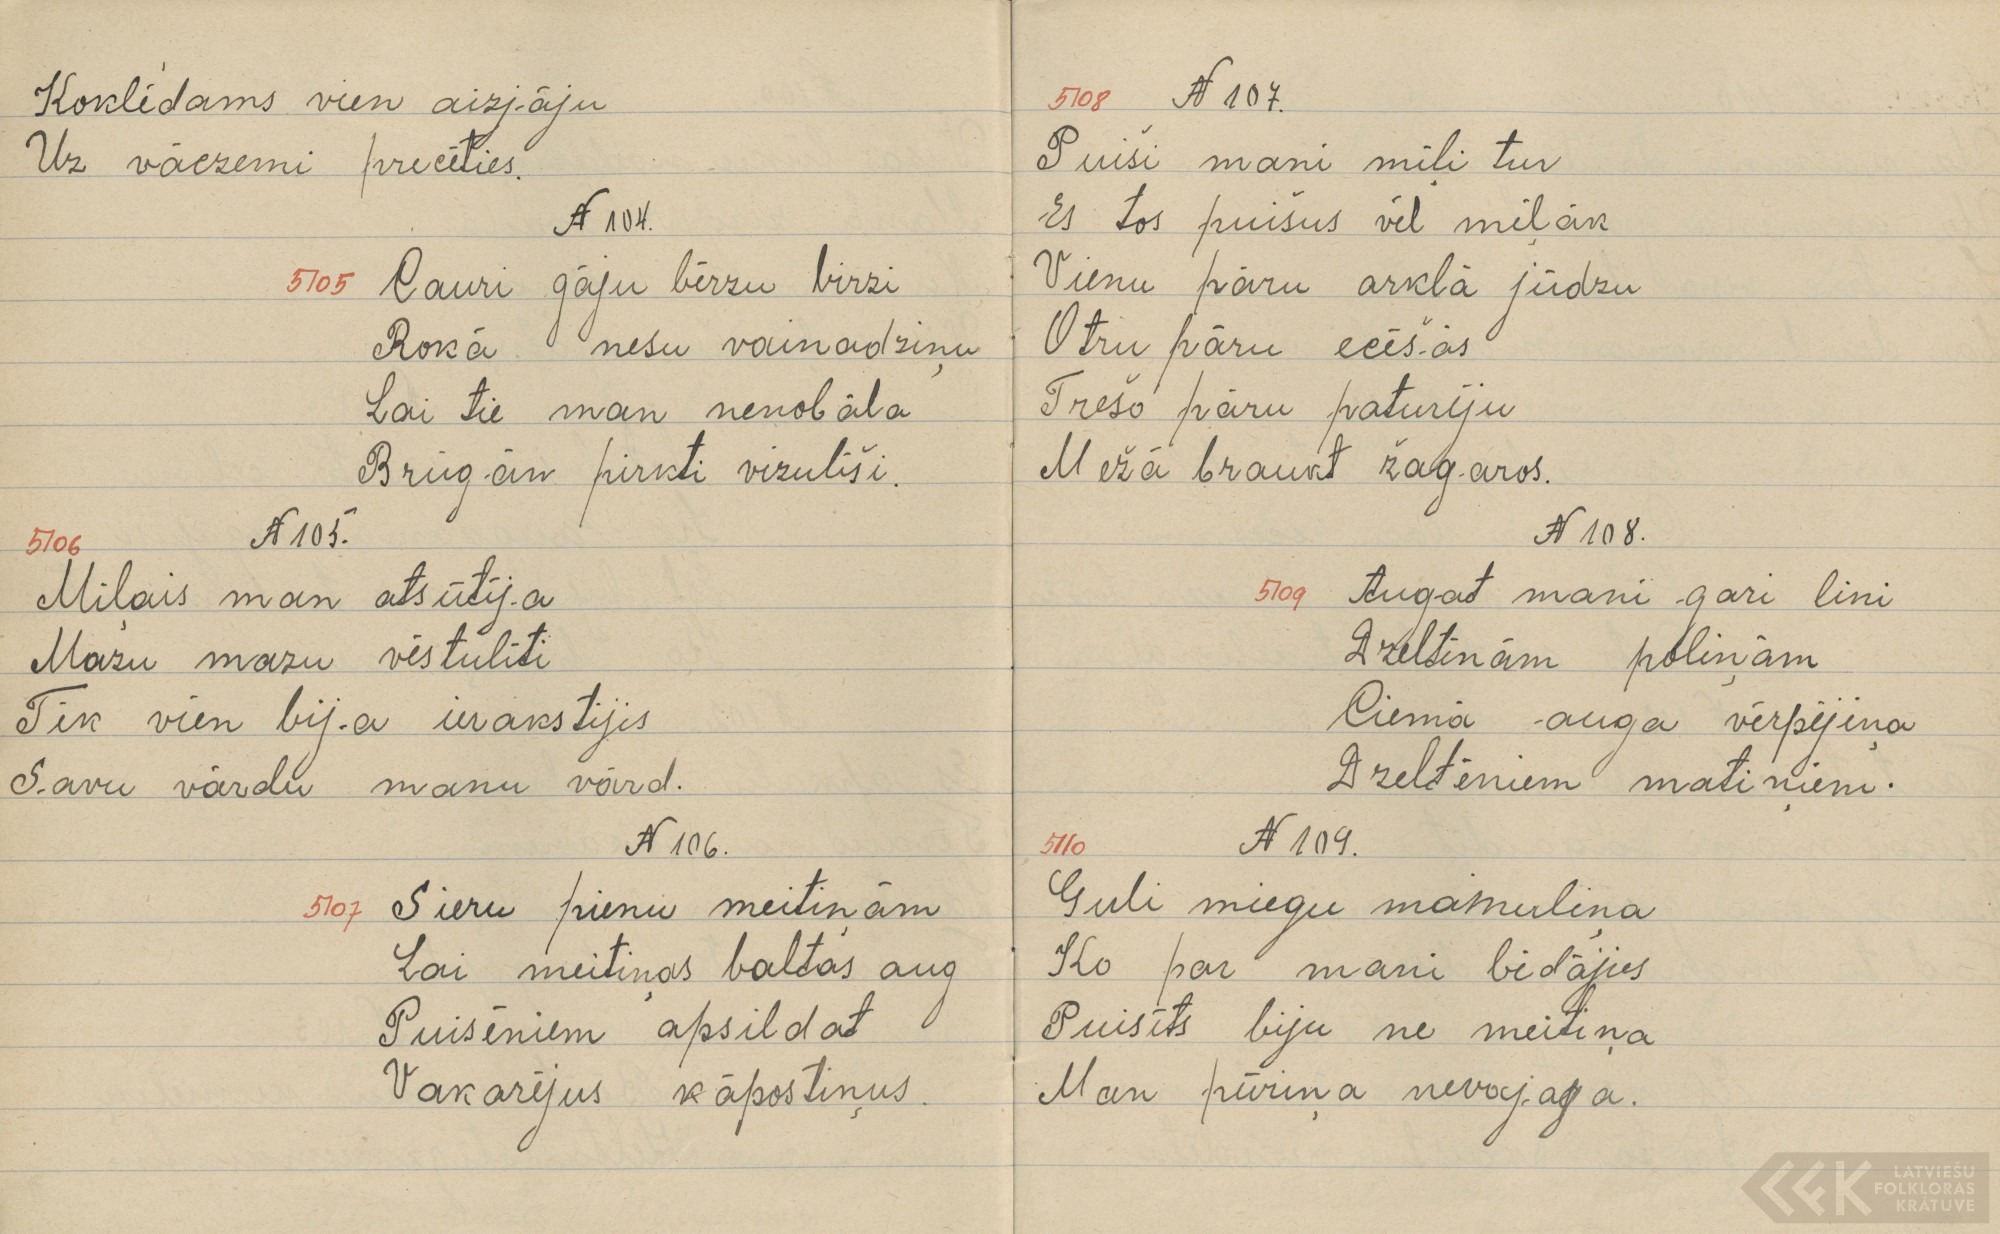 Koklēdams vien aizjāju
Uz vāczemi precēties.
N 104.
5105 Cauri gāju bērzu birzi
Rokā nesu vainadziņu
Lai tie man nenobāla
Brūgān pirkti vizulīši.
5106 N 105.
Miļais man atsūtīja
Mazu mazu vēstulīti
Tik vien bija ierakstijis
Savu vārdu manu vārd.
N 106.
5107 Sieru pienu meitiņām
Lai meitiņas baltas aug
Puisēniem apsildat
Vakarējus kāpostiņus.
5108 N 107.
Puiši mani miļi tur
Es tos puišus vēl miļāk
Vienu pāru arklā jūdzu
Otru pāru ecēšās
Trešo pāru paturēju
Mežā braukt žagaros.
N 108.
5109 Augat mani gari lini
Dzeltinām poliņām
Ciemā auga vērpējiņa
Dzeltēniem matiņiem.
5110 N 109.
Guli miegu māmuliņa
Ko par mani bēdājies
Puisīts biju ne meitiņa
Man pūriņa nevajaga.
LATVIEŠU
FOLKLORAS
KRĀTUVE